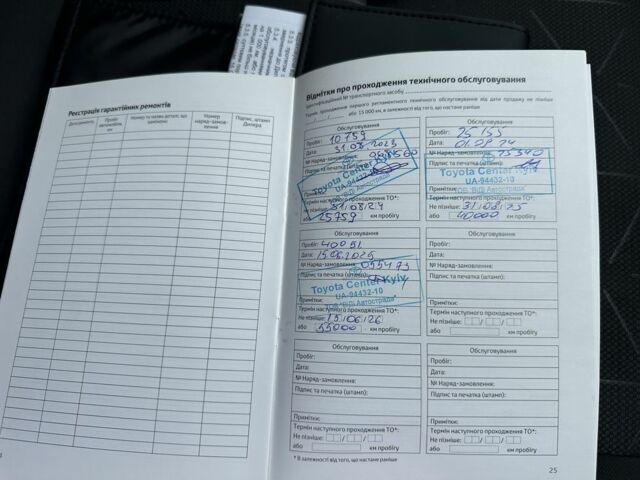 Реєстрація гарантійних ремонтів
Дата ремонту
Пробіг автомобіля, км
Номер та назва деталі, що замінено
Номер наряд-замов-лення
Підпис, штамп Дилера
Відмітки про проходження технічного обслуговування
Ідентифікаційний № транспортного засобу
Термін проходження першого регламентного технічного обслуговування від дати продажу не пізніше
або 15 000 км, в залежності від того, що настане раніше
Обслуговування
Пробіг: 10759
Дата: 31.08.2023
№ Наряд-замовлення:
Підпис та печатка (штамп):
Toyota Center Kyiv
UA-94432-10
ТОВ "ВіДі Автострада"
Примітки:
Термін наступного проходження ТО*:
31.08.24
або 25759 км пробігу
Обслуговування
Пробіг: 25155
Дата: 01.08.24
№ Наряд-замовлення: 75340
Підпис та печатка (штамп):
Toyota Center Kyiv
UA-94432-10
ТОВ "ВіДі Автострада"
Примітки:
Термін наступного проходження ТО*:
Не пізніше: 31.08.25
або 40000 км пробігу
Обслуговування
Пробіг: 40051
Дата: 15.06.2025
№ Наряд-замовлення: 055473
Підпис та печатка (штамп):
Toyota Center Kyiv
UA-94432-10
ТОВ "ВіДі Автострада"
Примітки:
Термін наступного проходження ТО*:
Не пізніше: 15.06.26
або 55000 км пробігу
Обслуговування
Пробіг:
Дата:
№ Наряд-замовлення:
Підпис та печатка (штамп):
Примітки:
Термін наступного проходження ТО*:
Не пізніше:
або км пробігу
Обслуговування
Пробіг:
Дата:
№ Наряд-замовлення:
Підпис та печатка (штамп):
Примітки:
Термін наступного проходження ТО*:
Не пізніше:
або км пробігу
Обслуговування
Пробіг:
Дата:
№ Наряд-замовлення:
Підпис та печатка (штамп):
Примітки:
Термін наступного проходження ТО*:
Не пізніше:
або км пробігу
* В залежності від того, що настане раніше
25